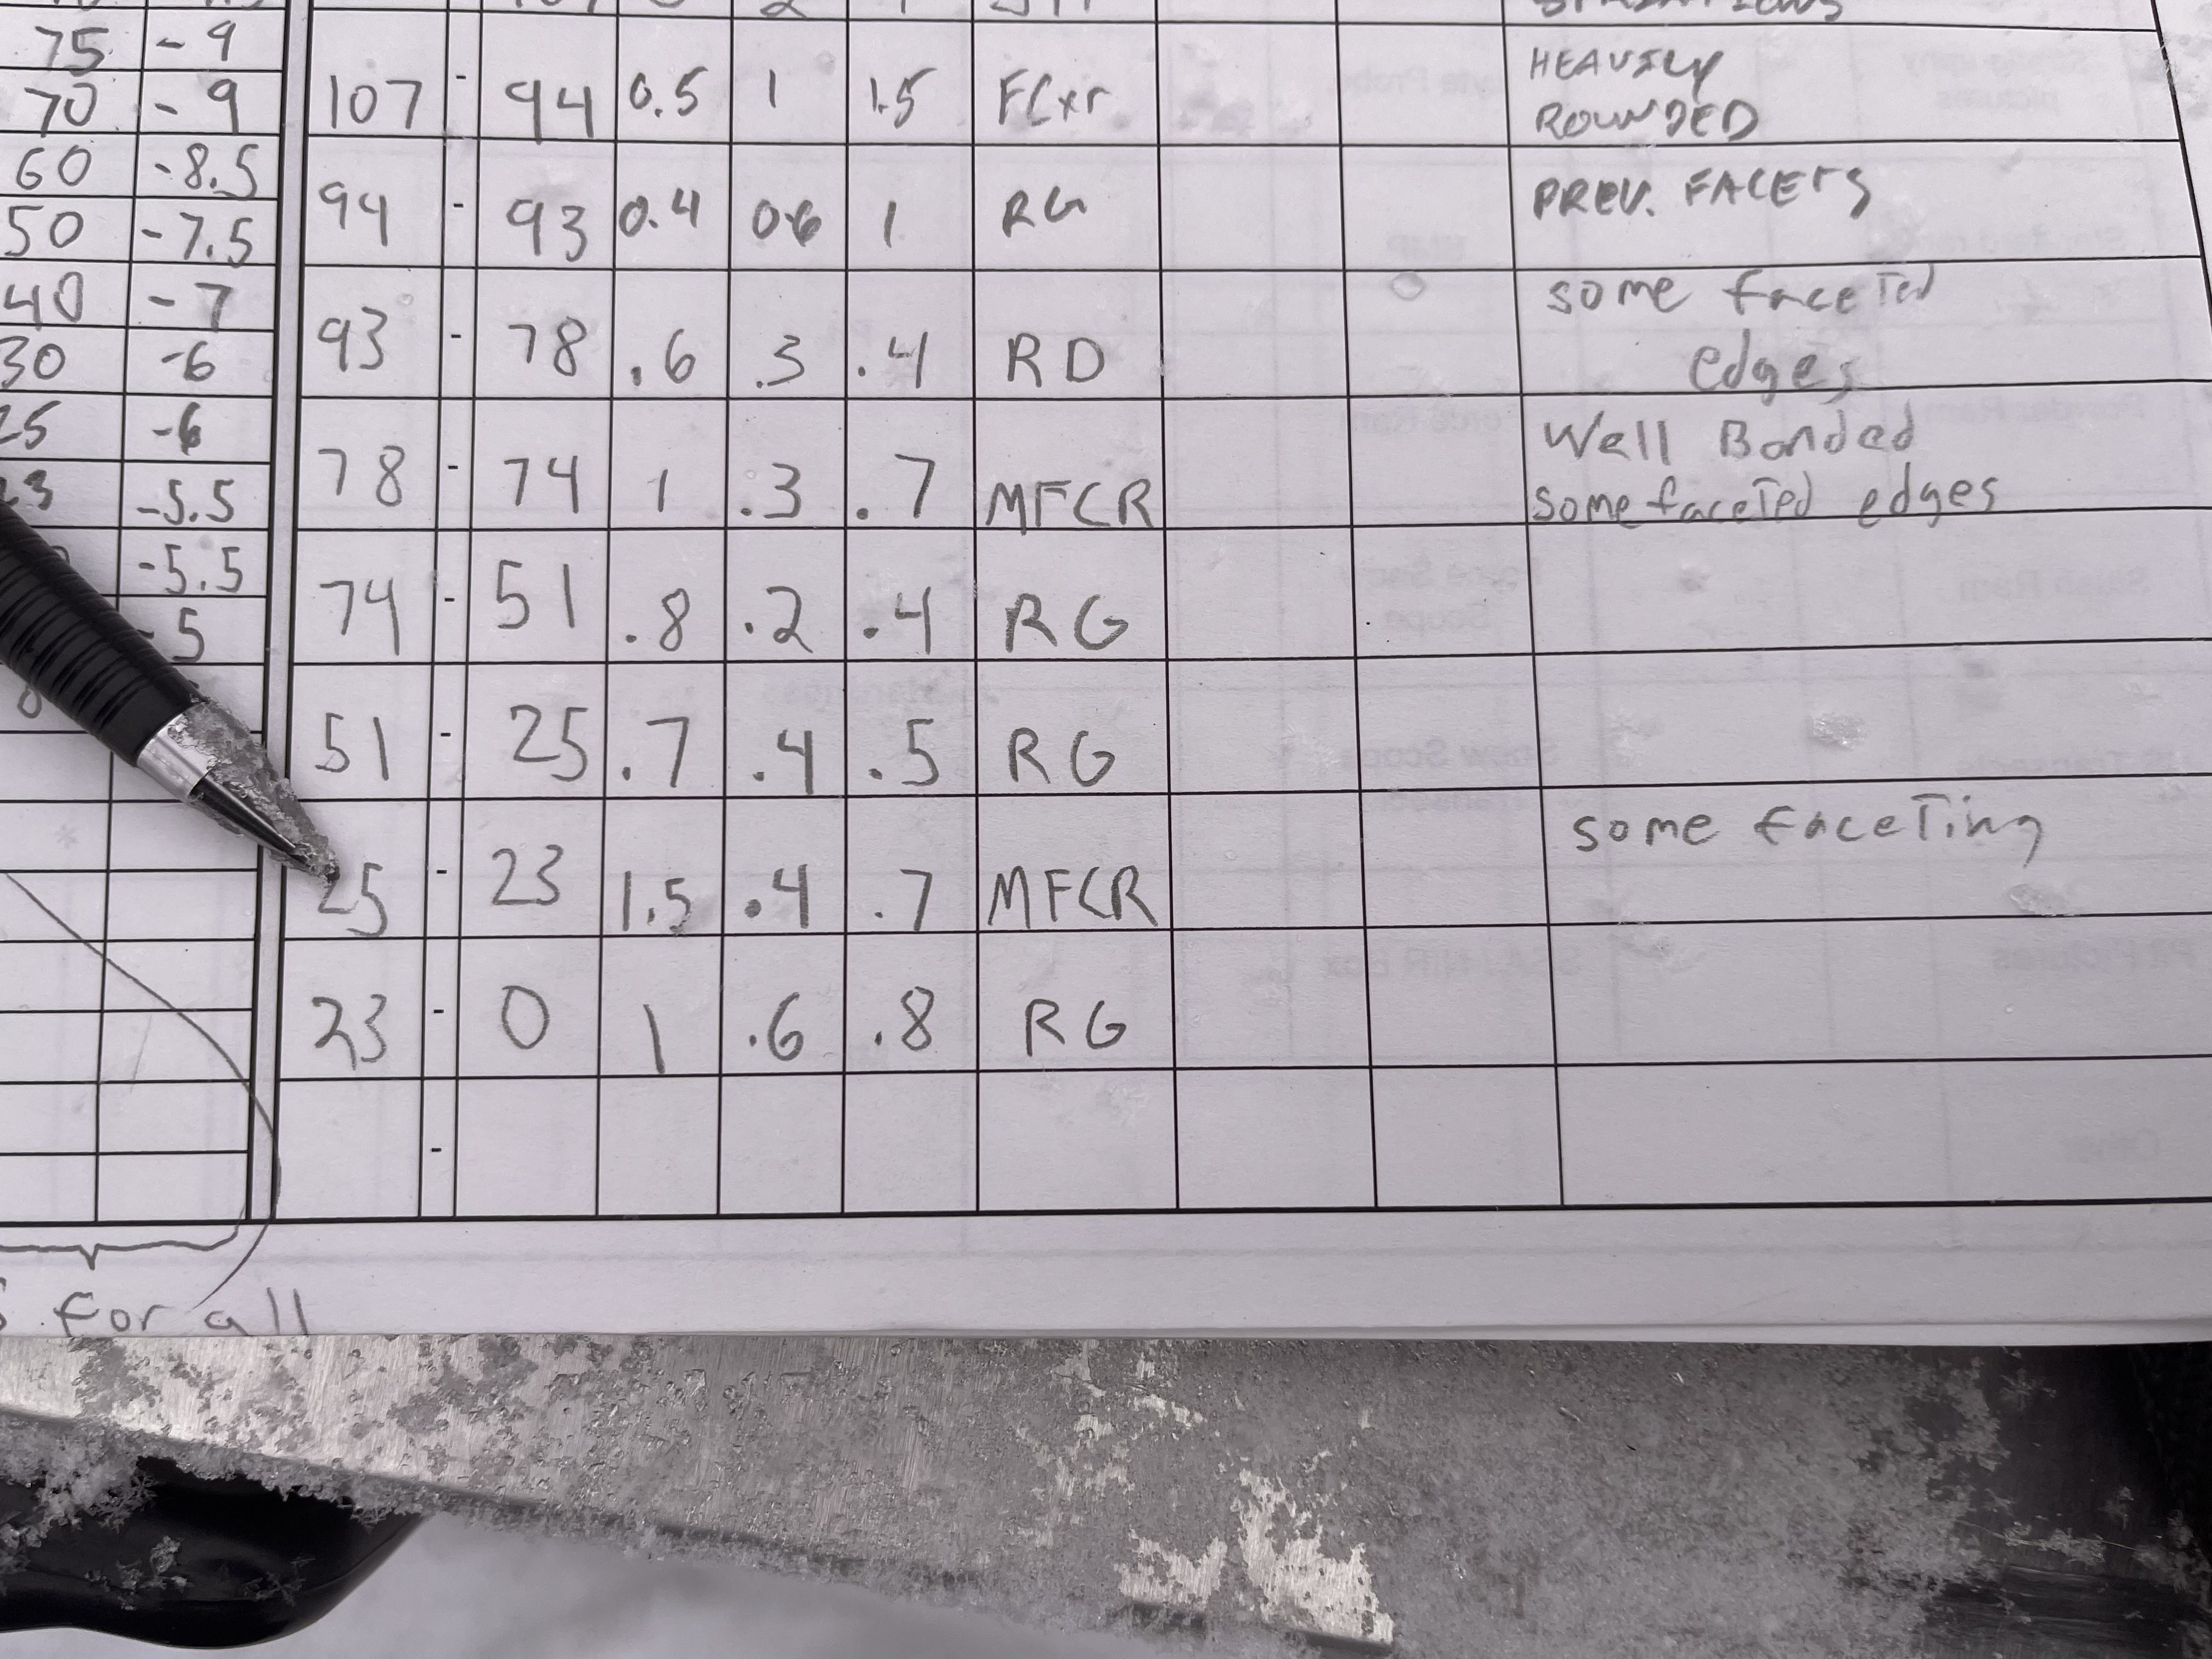 75 -9
70 -9
60 -8.5
50 -7.5
40 -7
30 -6
25 -6
23 -5.5
-5.5
-5
107 - 94 0.5 1 1.5 FCxr HEAVILY
ROUNDED
94 - 93 0.4 0.6 1 RG PREV. FACETS
93 - 78 .6 .3 .4 RD some faceted
edges
78 - 74 1 .3 .7 MFCR Well Bonded
some faceted edges
74 - 51 .8 .2 .4 RG
51 - 25 .7 .4 .5 RG
25 - 23 1.5 .4 .7 MFCR some faceting
23 - 0 1 .6 .8 RG
-
for all